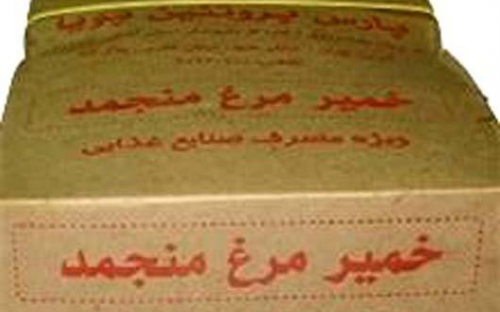 پارس پروتئین پویا
خمیر مرغ منجمد
ویژه مصرف صنایع غذایی
خمیر مرغ منجمد